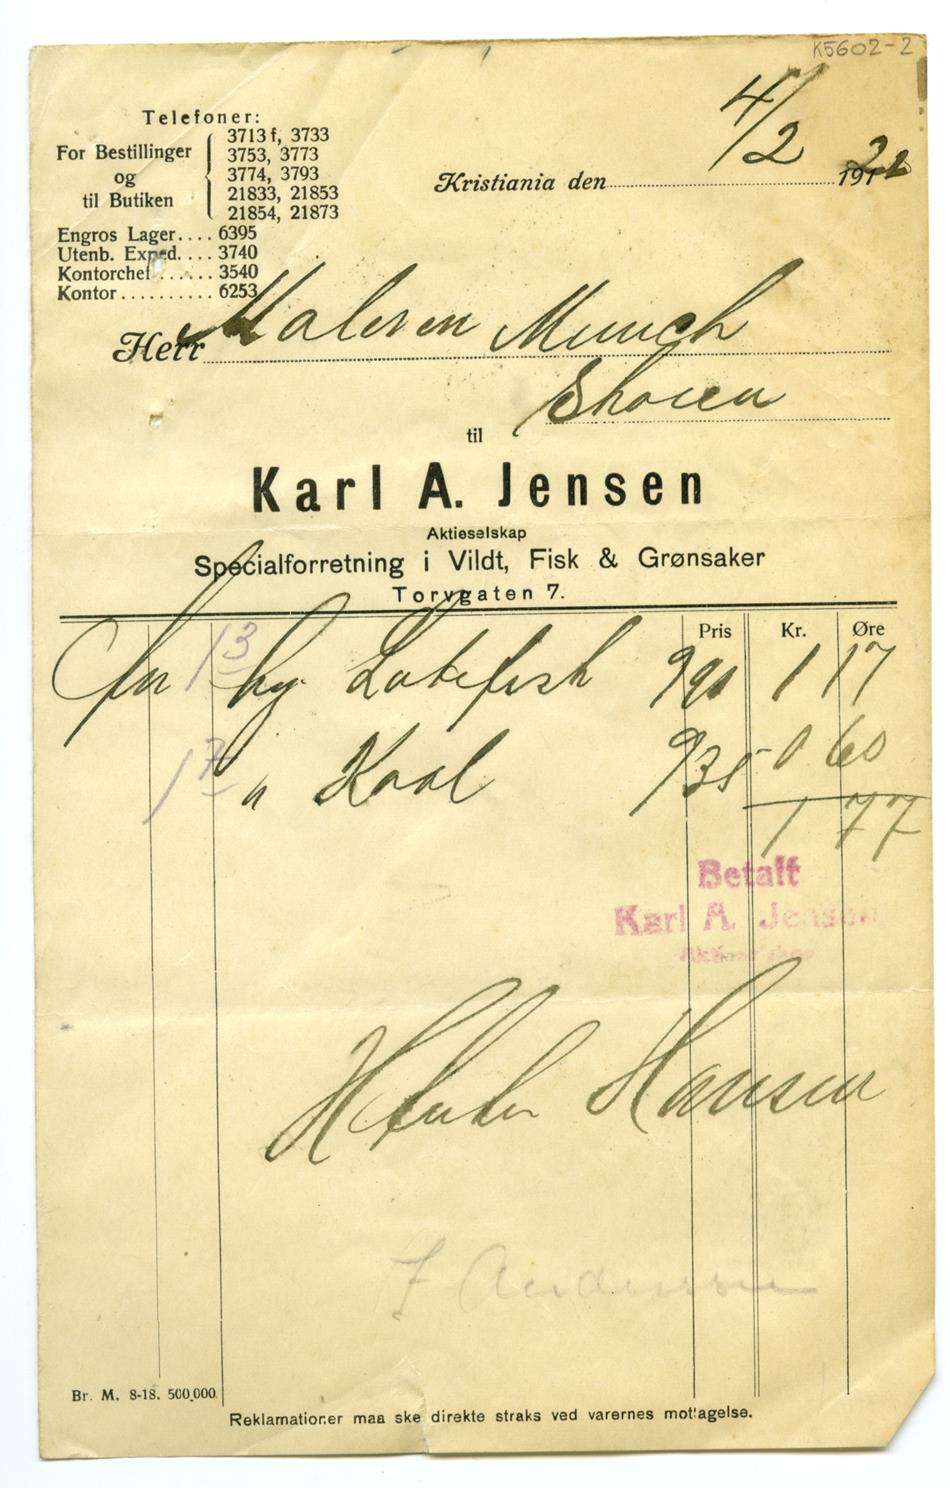 K5602-2
Telefoner:
For Bestillinger og til Butiken
3713 f, 3733
3753, 3773
3774, 3793
21833, 21853
21854, 21873
Engros Lager.... 6395
Utenb. Exped.... 3740
Kontorchef ...... 3540
Kontor .......... 6253
4/2
Kristiania den 191 22
Herr Maleren Munch
Skøien
til
Karl A. Jensen
Aktieselskap
Specialforretning i Vildt, Fisk & Grønsaker
Torvgaten 7.
Pris Kr. Øre
13 kg Lutefisk 90 1 17
17 " Kaal 35 0 60
1 77
Betalt
Karl A. Jensen
Aktieselskap
Hansen
F Anderssen
Br. M. 8-18. 500,000.
Reklamationer maa ske direkte straks ved varernes mottagelse.